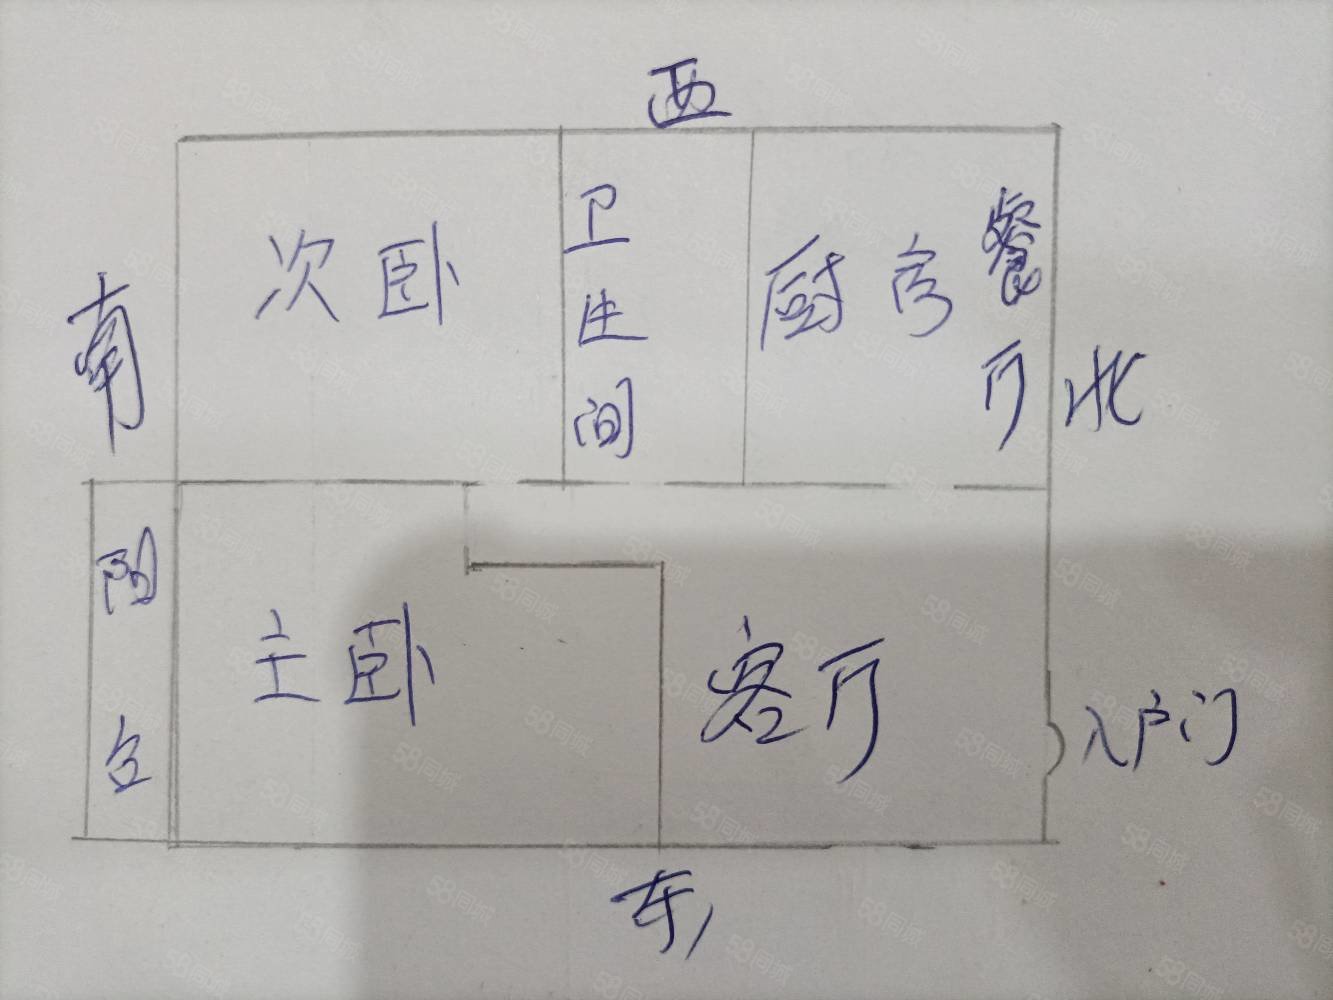 西
次卧
卫生间
厨房
餐厅
南
北
阳台
主卧
客厅
入户门
东
58同城